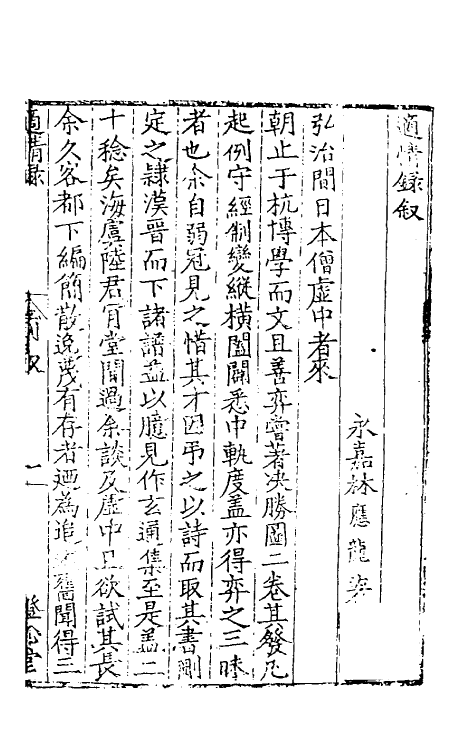 適情錄叙
永嘉林應龍
弘治間日本僧虛中者來
朝止于杭博學而文且善弈嘗著决勝圖二卷其發凡
起例守經制變縱橫闔闢悉中軌度盖亦得弈之三昧
者也余自弱冠見之惜其才因弔之以詩而取其書刪
定之隷漢晉而下諸譜益以臆見作玄通集至是盖二
十稔矣海虞陸君肖堂間過余談及虛中且欲試其長
余久客都下編簡散逸蔑有存者廼為追 舊聞得三
適情錄
叙
一